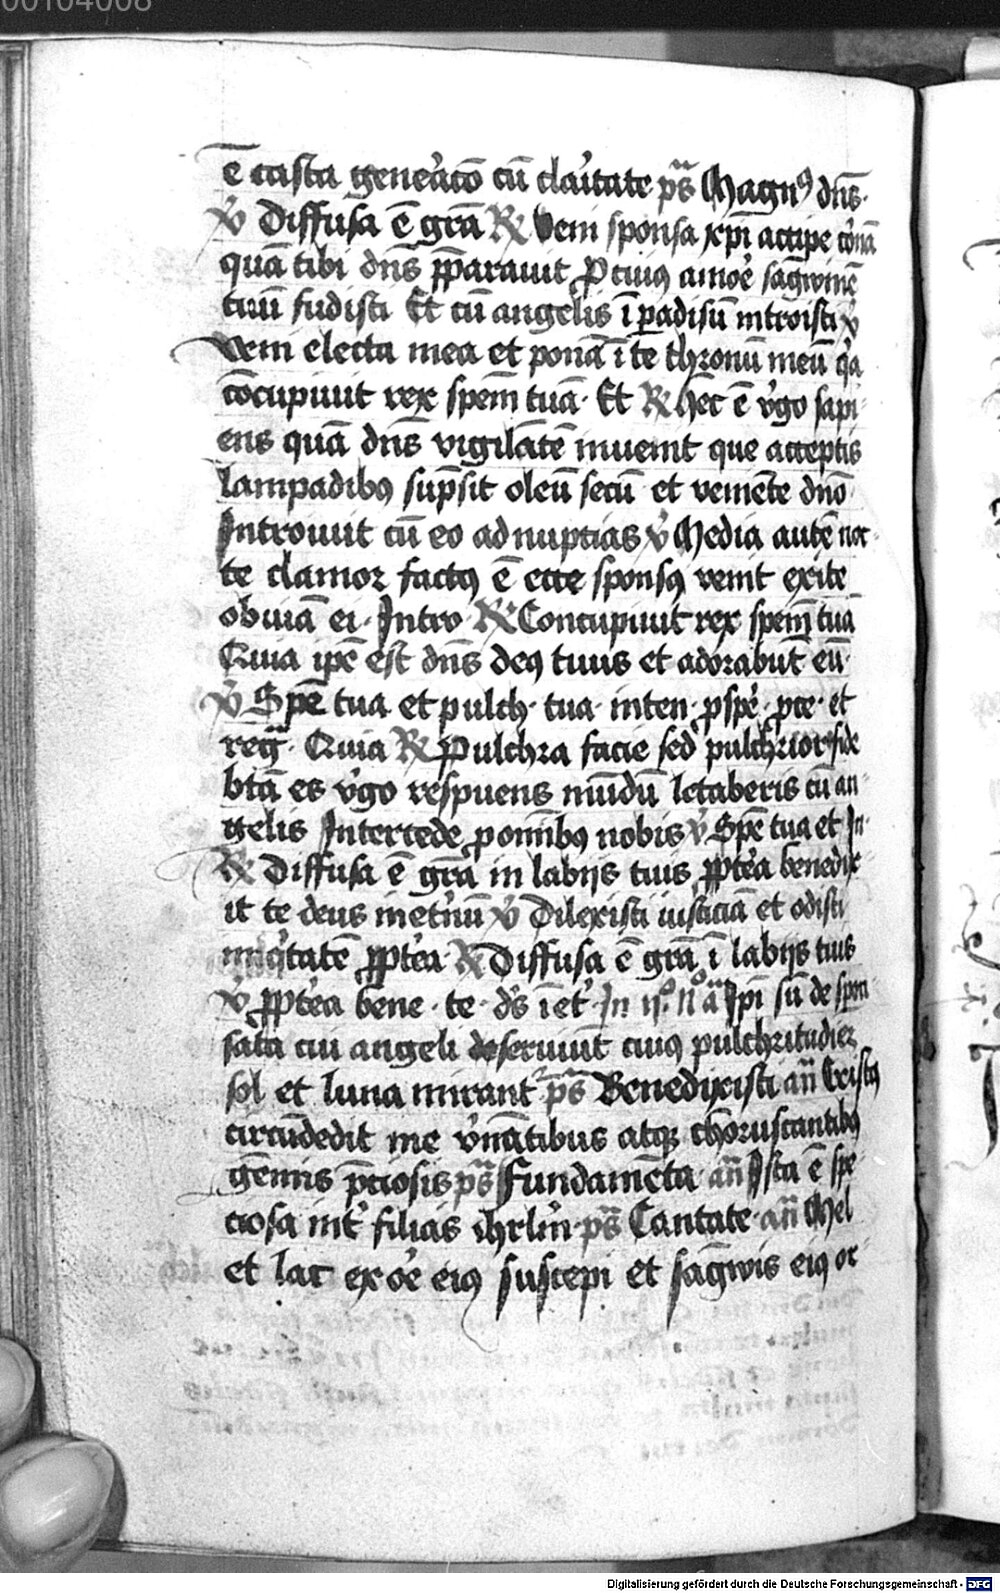 00104008
ē casta gene͛acō cū cla͛itate p̄s Magnꝰ dn̄s·
℣ Diffusa ē gr̄a ℟ Veni sponsa xp̄i accipe co͛nā
quā tibi dn̄s p̄parauit ꝓ cuiꝰ amo͛e sāgwinē
tuū fudisti Et cū angelis ī ꝑadisū introisti ℣
Veni electa mea et ponā ī te thronū meū q͛a
cōcupiuit rex sp̄em tuā· Et ℟ Hec ē v͛go sapi
ens quā dn̄s vigilātē inuenit que acceptis
lampadibꝰ sūpsit oleū secū et veniēte dn̄o
Introiuit cū eo ad nuptias ℣ Media autē noc
te clamor factꝰ ē ecce sponsꝰ venit exite
obuiā ei· Intro ℟ Concupiuit rex sp̄em tuā
Quia ip̄e est dn̄s deꝰ tuus et adorabūt eū·
℣ Sp̄e tua et pulch· tua· inten· ꝓspe͛· ꝓce· et
reḡ· Quia ℟ Pulchra facie sed pulchrior fide
bt̄a es v͛go respuens mūdū letaberis cū an
gelis Intercede ꝓ om̄ibꝰ nobis ℣ Sp̄e tua et In·
℟ Diffusa ē gr̄a in labijs tuis ꝓpte͛a benedix
it te deus inet͛nū ℣ Dilexisti iusticiā et odisti
iniq͛tatē ꝓpte͛a ℟ Diffusa ē gr̄a ī labijs tuis
℣ ꝓpte͛a bene· te· ds̄ īet͛· In ijº nº a᷑ Ipi sū de spon
sata cui angeli deseruiūt cuiꝰ pulchritudiēz
sol et luna mirant᷑ p̄s Benedixisti an̄ Cristꝰ
circūdedit me v͛nātibus atqꝫ choruscantibꝰ
gēmis p̄ciosis p̄s Fundamēta· an̄ Ista ē spe
ciosa int͛ filias ihrl̄m· p̄s Cantate· an̄ Mel
et lac ex oe͛ eiꝰ suscepi et sāgwis eiꝰ or
Digitalisierung gefördert durch die Deutsche Forschungsgemeinschaft - DFG